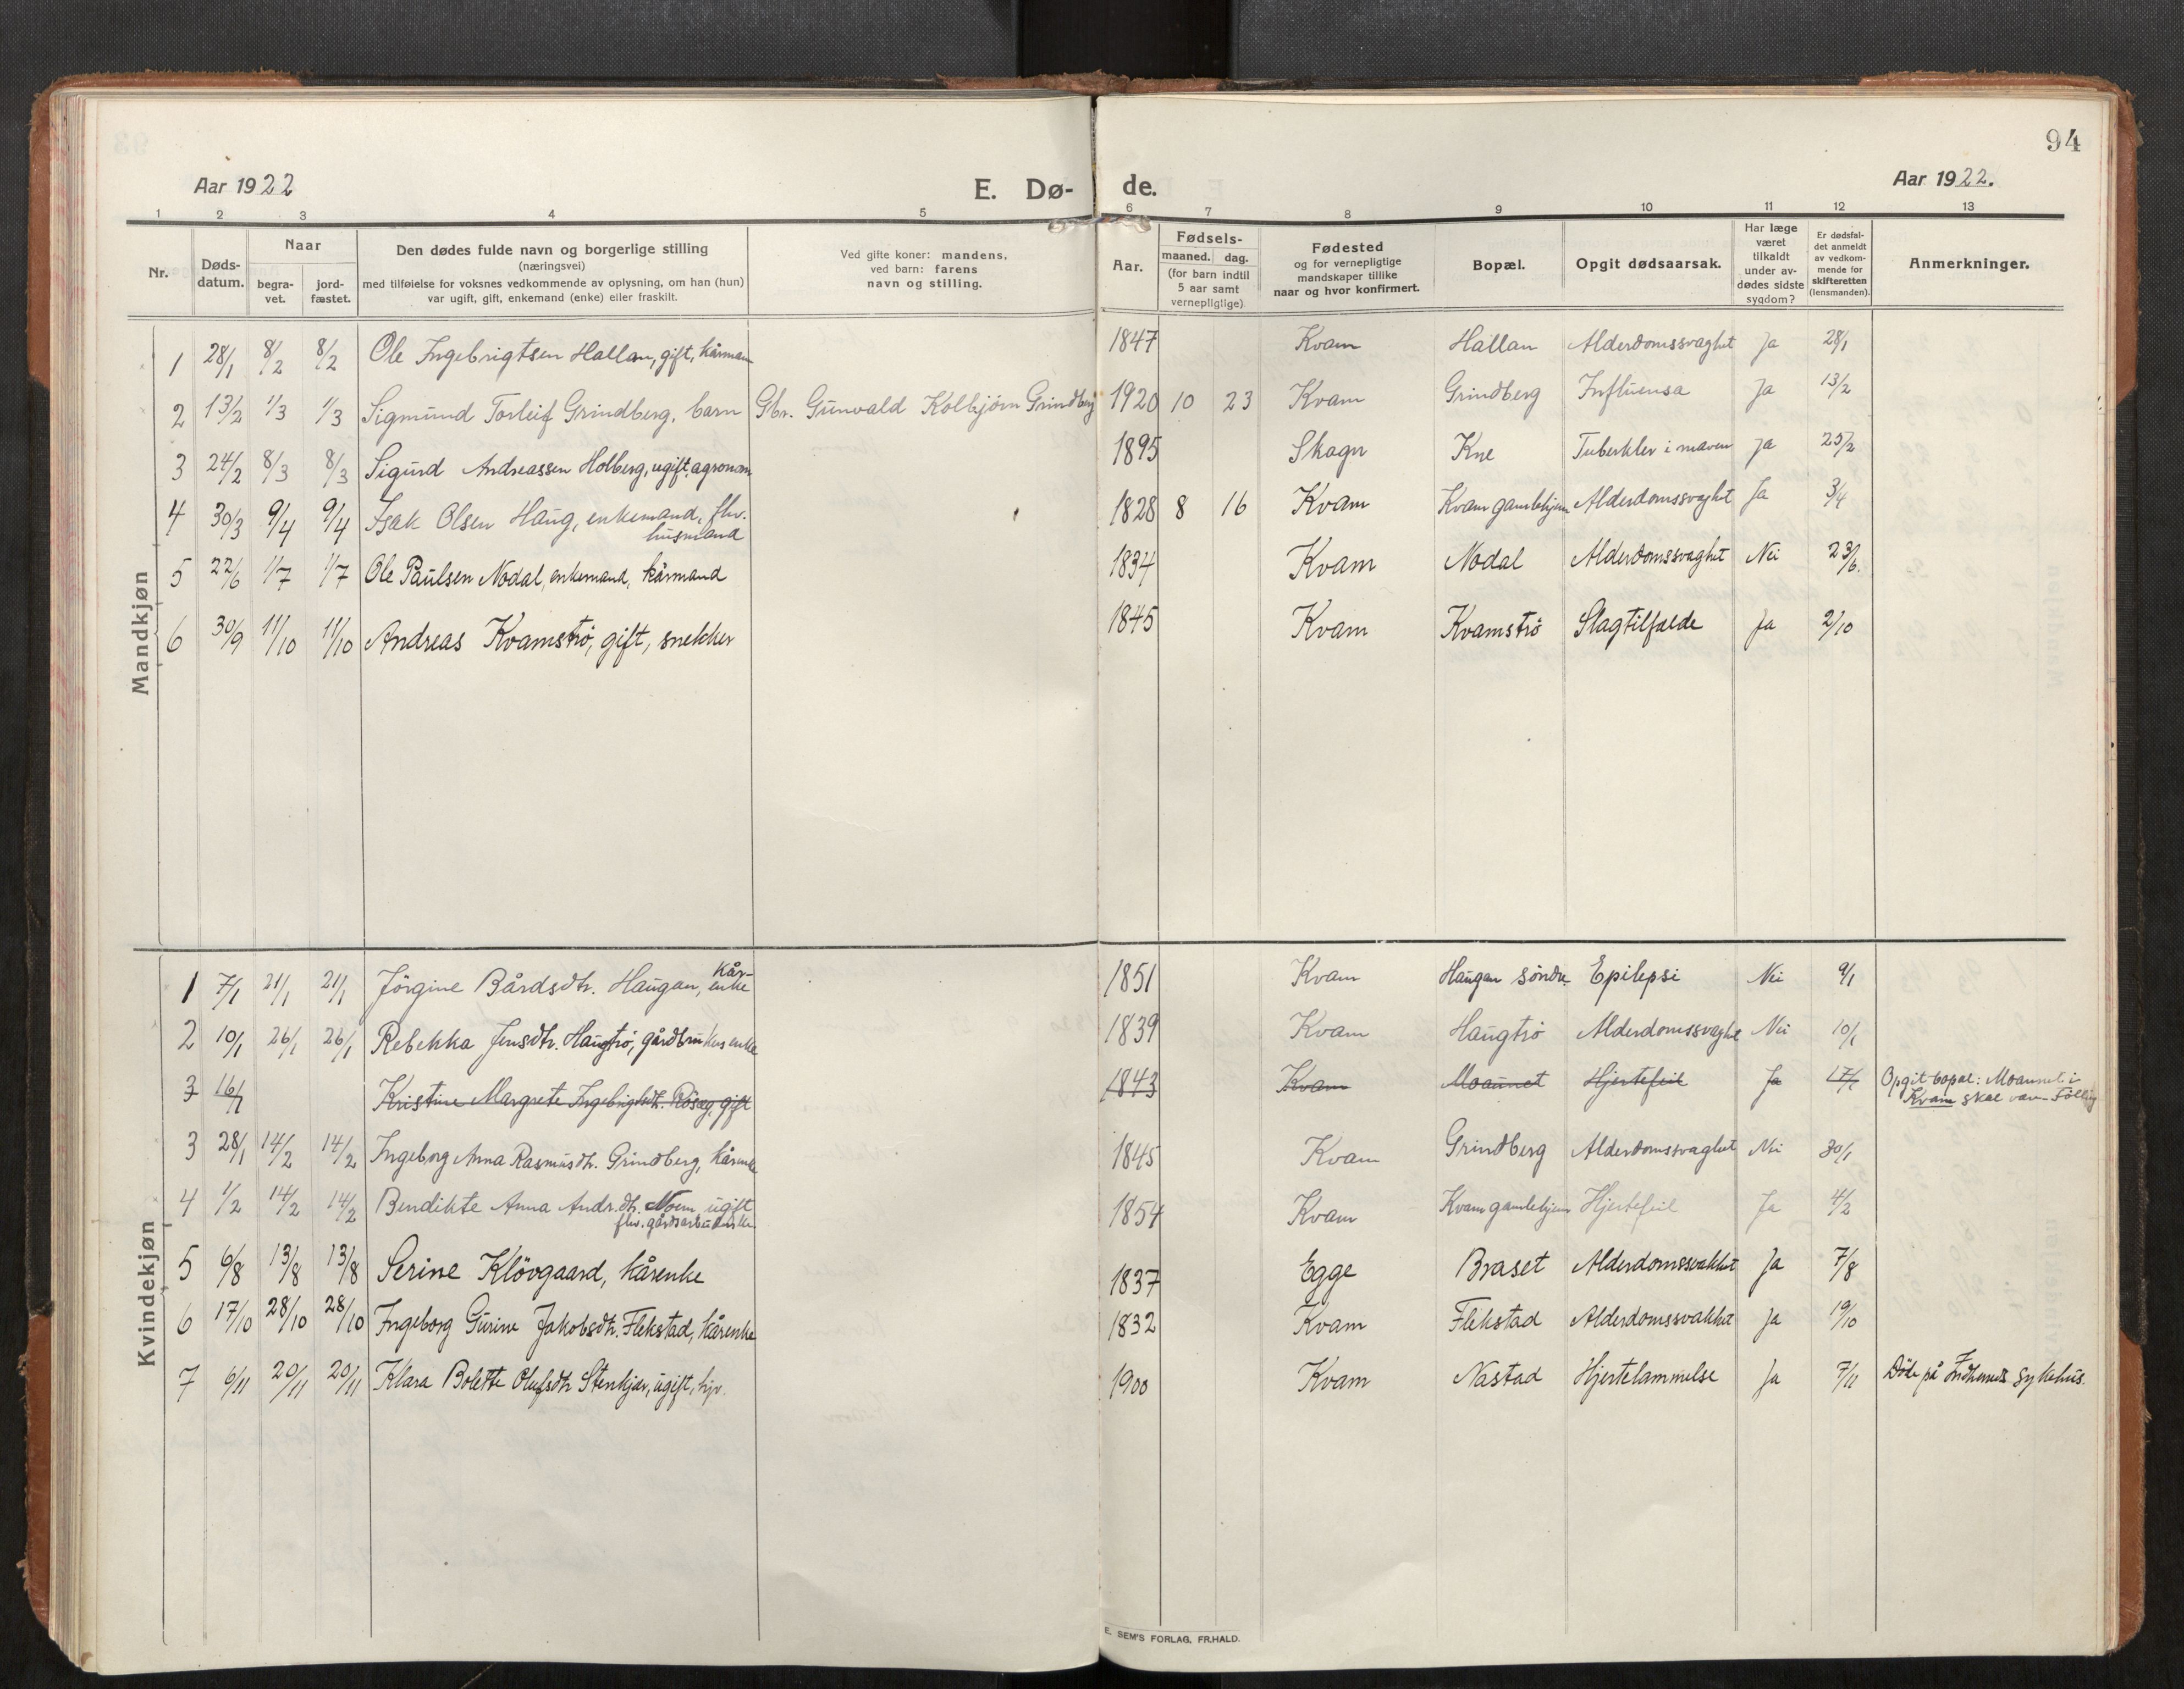 94
Aar 1922
E. Dø-
de.
Aar 1922.
1 2 3 4 5 6 7 8 9 10 11 12 13
Nr.
Døds-
datum.
Naar
begra-
vet.
jord-
fæstet.
Den dødes fulde navn og borgerlige stilling
(næringsvei)
med tilføielse for voksnes vedkommende av oplysning, om han (hun)
var ugift, gift, enkemand (enke) eller fraskilt.
Ved gifte koner: mandens,
ved barn: farens
navn og stilling.
Aar.
Fødsels-
maaned. dag.
(for barn indtil
5 aar samt
vernepligtige)
Fødested
og for vernepligtige
mandskaper tillike
naar og hvor konfirmert.
Bopæl.
Opgit dødsaarsak.
Har læge
været
tilkaldt
under av-
dødes sidste
sygdom?
Er dødsfal-
det anmeldt
av vedkom-
mende for
skifteretten
(lensmanden).
Anmerkninger.
Mandkjøn
1 28/1 8/2 8/2 Ole Ingebrigtsen Hallan, gift, kårmann 1847 Kvam Hallan Alderdomssvaghet Ja 28/1
2 13/2 1/3 1/3 Sigmund Torleif Grindberg, barn Gbr. Gunvald Kolbjørn Grindberg 1920 10 23 Kvam Grindberg Influensa Ja 13/2
3 24/2 8/3 8/3 Sigurd Andreassen Holberg, ugift agronom 1895 Skogn Kne Tuberkler i maven Ja 25/2
4 30/3 9/4 9/4 Isak Olsen Haug, enkemand, fhv. 1828 8 16 Kvam Kvam gamlehjem Alderdomssvaghet Ja 3/4
husmand
5 22/6 1/7 1/7 Ole Paulsen Nodal, enkemand, kårmand 1834 Kvam Nodal Alderdomssvaghet Nei 23/6.
6 30/9 11/10 11/10 Andreas Kvamstrø, gift, snekker 1845 Kvam Kvamstrø Slagtilfælde Ja 2/10
Kvindekjøn
1 7/1 21/1 21/1 Jörgine Bårdsdtr. Haugan, kår-
enke 1851 Kvam Haugan söndre Epilepsi Nei 9/1
2 10/1 26/1 26/1 Rebekka Jensdtr. Haugtrø, gårdbrukers enke 1839 Kvam Haugtrø Alderdomssvaghet Nei 10/1
3 16/1 Kristine Margrete Ingebrigtsdtr. Rösæg, gift 1843 Kvam Moaunet Hjertefeil Ja 17/1 Opgit bopæl: Moaunet i
Kvam skal være Fölling
3 28/1 14/2 14/2 Ingeborg Anna Rasmusdtr. Grindberg, kårenke 1845 Kvam Grindberg Alderdomssvaghet Nei 30/1
4 1/2 14/2 14/2 Bendikte Anna Andr.dtr. Moem ugift 1854 Kvam Kvam gamlehjem Hjertefeil Ja 4/2
fhv. gårdsarbeiderske
5 6/8 13/8 13/8 Serine Klövgaard, kårenke 1837 Egge Braset Alderdomssvakhet Ja 7/8
6 17/10 28/10 28/10 Ingeborg Gurine Jakobsdtr. Flekstad, kårenke 1832 Kvam Flekstad Alderdomssvakhet Ja 19/10
7 6/11 20/11 20/11 Klara Bolette Olufsdtr Stenkjær, ugift, hjv. 1900 Kvam Nastad Hjertelammelse Ja 7/11 Döde på Indherreds sykehus.
E. SEM'S FORLAG, FR.HALD.